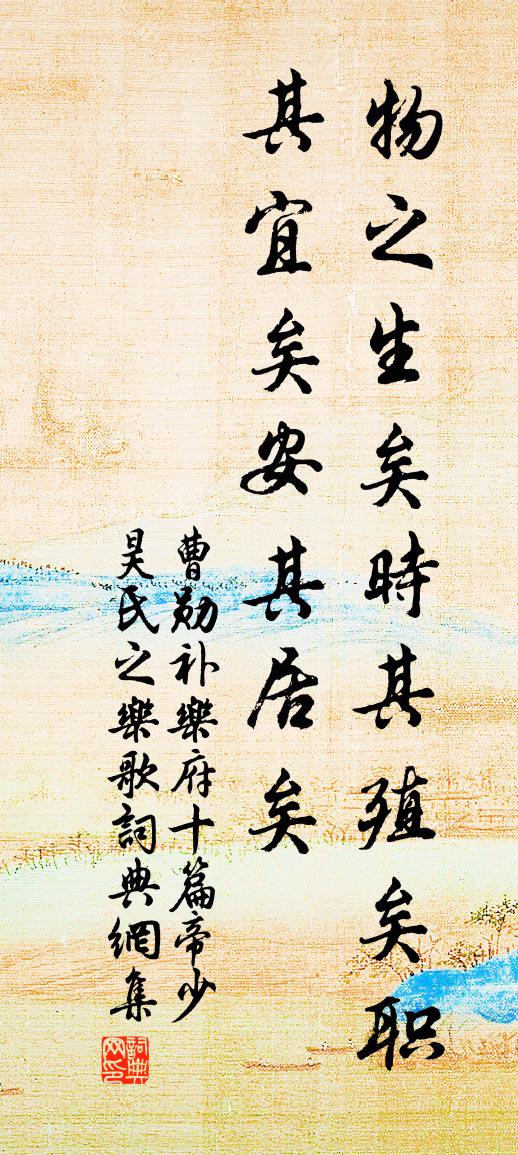 物之生矣時其殖矣职
其宜矣安其居矣
曹勛补樂府十篇帝少
昊氏之樂歌詞典網集
詞典网印